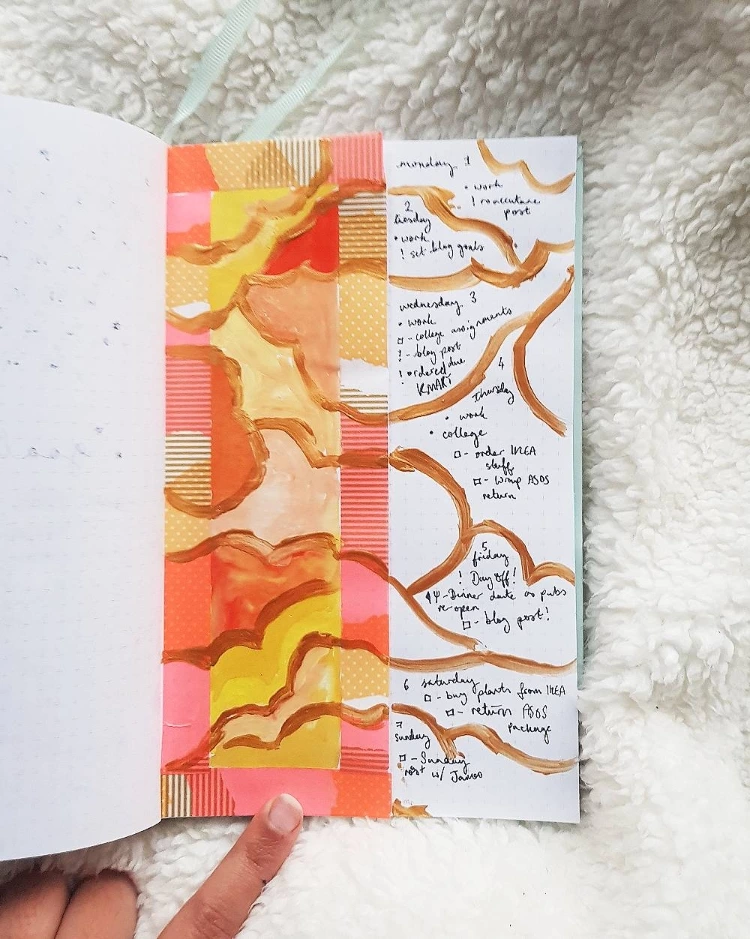 monday. 1
• work
! rona culture
post
2
tuesday
• work
! set blog goals
wednesday. 3
• work
□ - college assignments
! - blog post
! ordered due
KMART
4
Thursday
• work
• college
□ - order IKEA
stuff
□ - wrap ASOS
return
5
friday
! Day off!
- Dinner date as pubs
re-open
□ - blog post!
6 saturday
□ - buy plants from IKEA
□ - return ASOS
package
7
sunday
□ - Sunday
roast w/